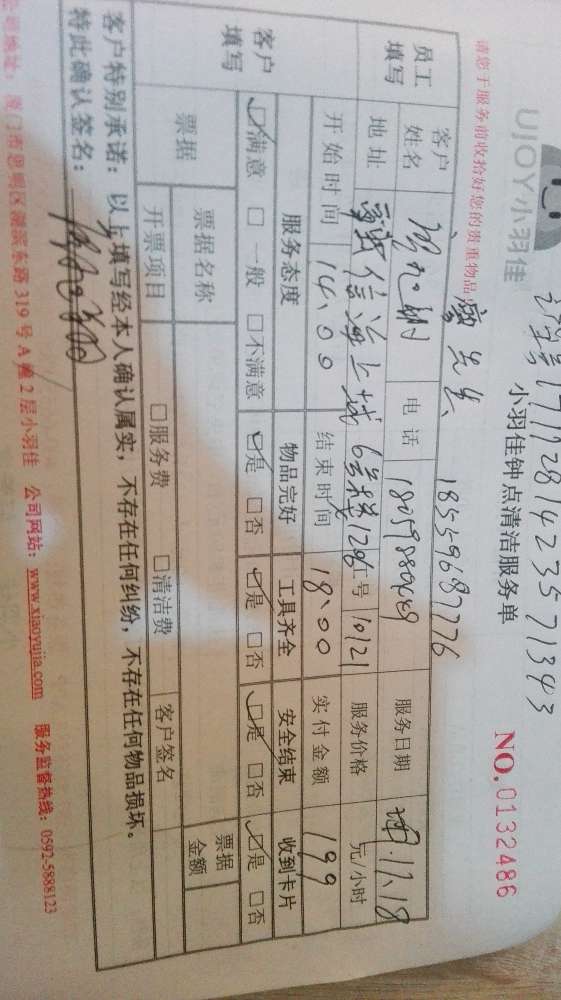 1711281423571343
UJOY小羽佳 小羽佳钟点清洁服务单 NO.0132486
请您于服务前收拾好您的贵重物品
先生 18559687776
员工填写 客户姓名 电话 服务日期 17.18
地址 海上城 工号 10121 服务价格 元/小时
开始时间 14:00 结束时间 18:00 实付金额 199
客户填写 服务态度 物品完好 工具齐全 安全结束 收到卡片
☑满意 □一般 □不满意 ☑是 □否 ☑是 □否 ☑是 □否 ☑是 □否
票据 票据名称 票据金额
开票项目 □服务费 □清洁费 客户签名
客户特别承诺：以上填写经本人确认属实，不存在任何纠纷，不存在任何物品损坏。
特此确认签名：
厦门市思明区湖滨东路319号A幢2层小羽佳 公司网站：www.xiaoyujia.com 服务监督热线：0592-5888123